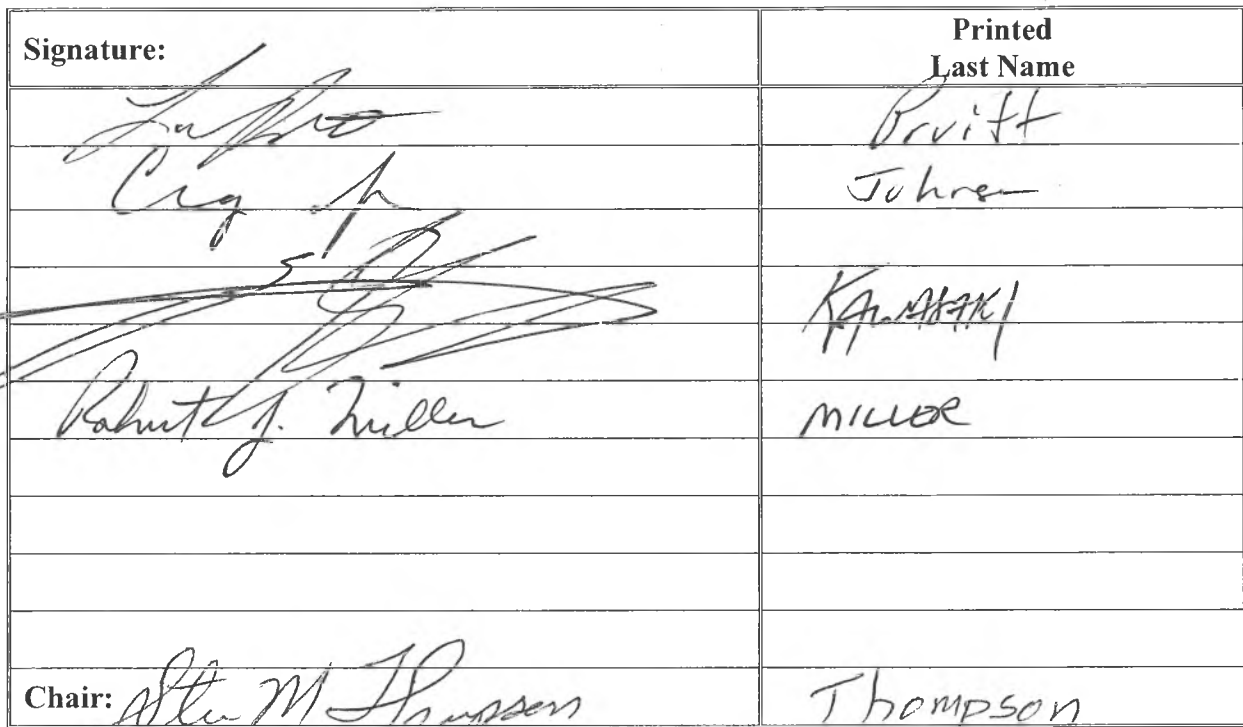 Signature:
Printed
Last Name
Pruitt
Johnson
KAWASAKI
Robert J. Miller
MILLER
Chair: Steve M Thompson
Thompson